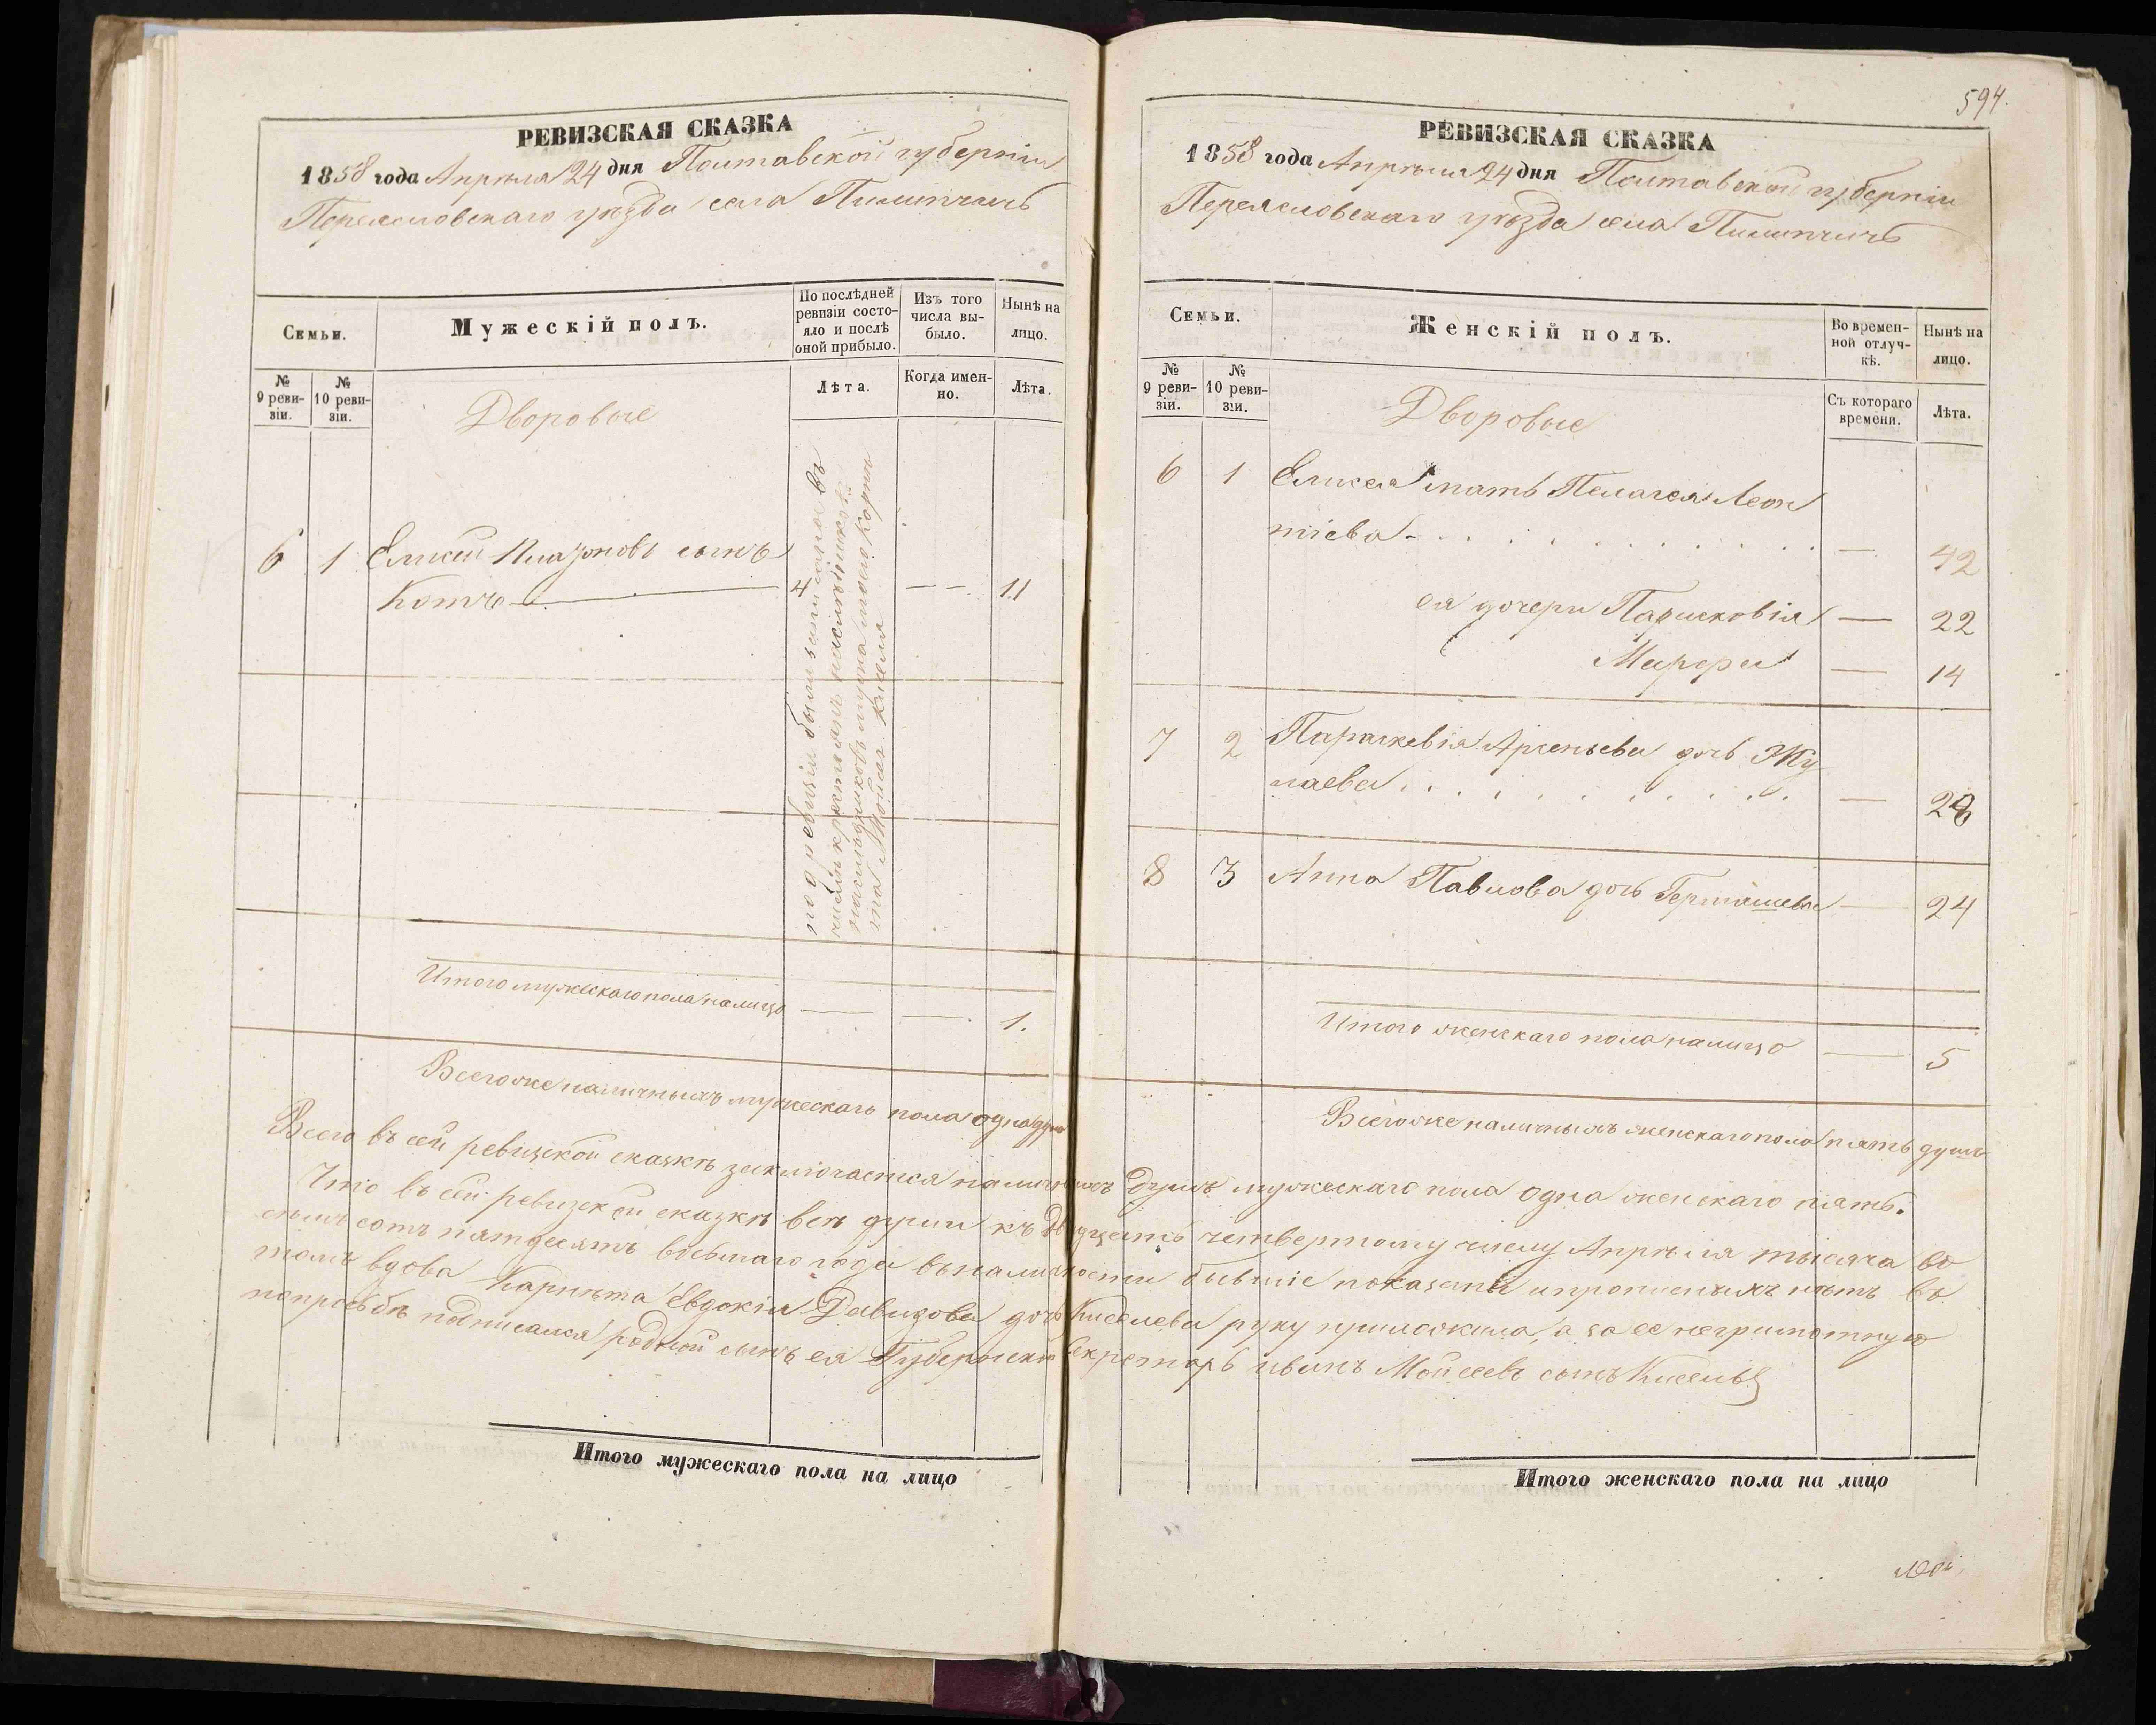 РЕВИЗСКАЯ СКАЗКА
1858 года Апрѣля 24 дня Полтавской губерніи
Переясловскаго уѣзда села Пилипчичъ
Семьи.
Мужескій полъ.
По послѣдней ревизіи состояло и послѣ оной прибыло.
Изъ того числа выбыло.
Нынѣ на лицо.
№ 9 ревизіи.
№ 10 ревизіи.
Лѣта.
Когда именно.
Лѣта.
Дворовые
6 1 Елисей Платоновъ сынъ
Котъ 4 — — 11
по 9 ревизіи были записаны въ
числѣ крестьянъ наслѣдниковъ
мужа моего Корнета Моисея Киселя
Итого мужескаго пола налицо — — 1.
Всегоже наличныхъ мужескаго пола одна душа
594.
РЕВИЗСКАЯ СКАЗКА
1858 года Апрѣля 24 дня Полтавской губерніи
Переясловскаго уѣзда села Пилипчичъ
Семьи.
Женскій полъ.
Во временной отлучкѣ.
Нынѣ на лицо.
№ 9 ревизіи.
№ 10 ревизіи.
Съ котораго времени.
Лѣта.
Дворовые
6 1 Елисея мать Пелагея Леон
тіева — 42
ея дочери Парасковія — 22
Марфа — 14
7 2 Параскевія Арсеньева дочь Жу
лаева — 28
8 3 Анна Павлова дочь — 24
Итого женскаго пола налицо — 5
Всегоже наличныхъ женскаго пола пять душъ
Всего въ сей ревизской сказкѣ заключается наличныхъ душъ мужескаго пола одна женскаго пять.
Что въ сей ревизской сказкѣ всѣ души къ двадцать четвертому числу Апрѣля тысяча во
семъ сотъ пятдесятъ восьмаго года въ наличности бывшіе показаны и прописныхъ нѣтъ въ
томъ вдова Карнета Евдокія Давидова дочь Киселева руку приложила, а за ее неграмотную
попросьбѣ подписался родной сынъ ея Губернскій Секретарь Иванъ Мойсеевъ сынъ Кисель
Итого мужескаго пола на лицо
Итого женскаго пола на лицо